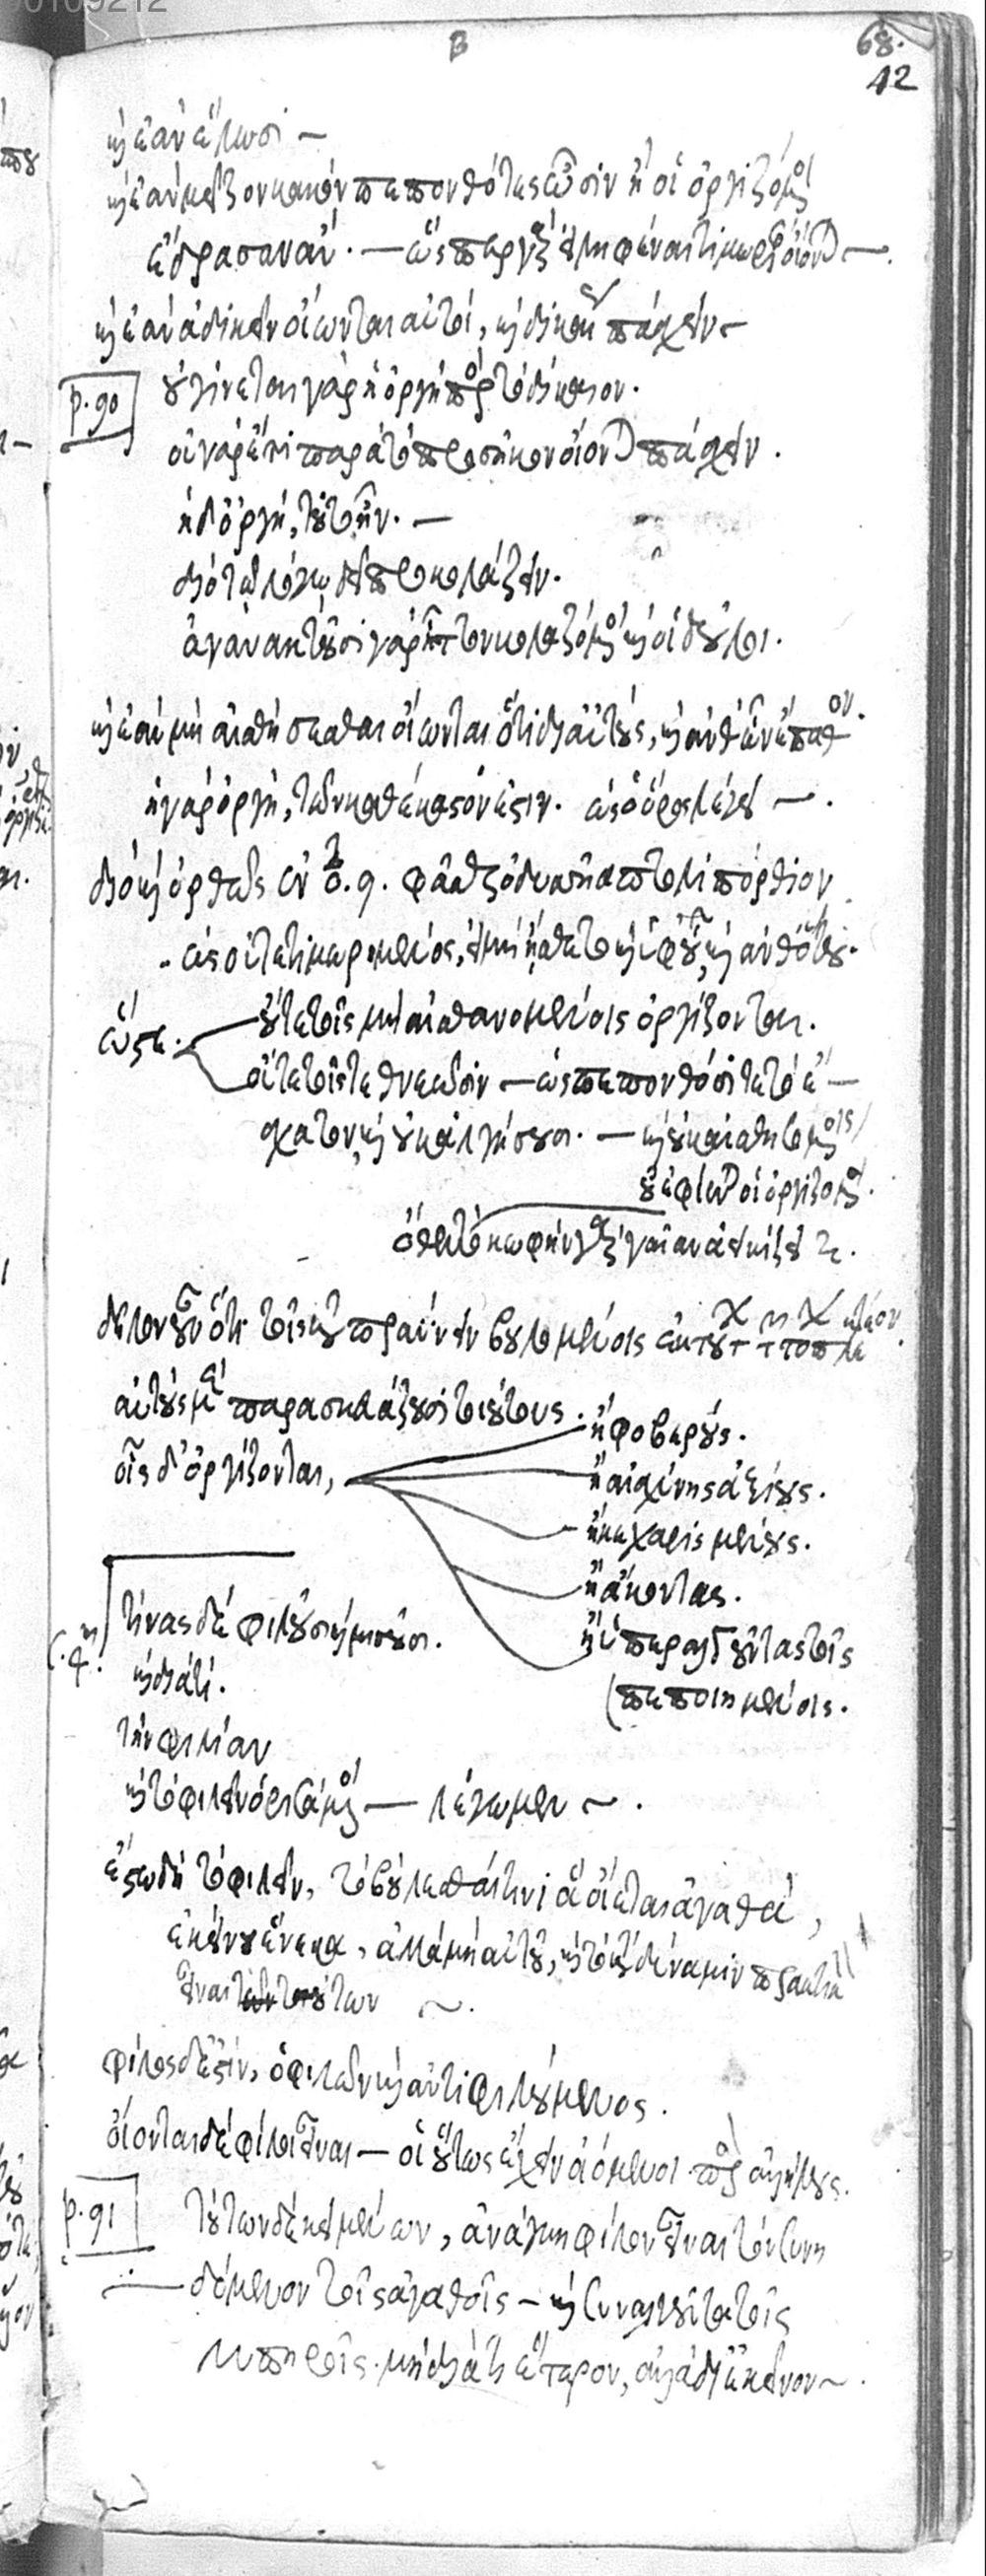 B
68.
12
καὶ ἐὰν ἕλωσι —
καὶ ἐὰν μεῖζον κακὸν πεπονθότες ὦσιν ἢ οἱ ὀργιζόμενοι
ἔδρασαν ἄν. — ὥσπερ γὰρ εἰληφέναι τιμωρίαν οἴονται —.
καὶ ἐὰν ἀδικεῖν οἴωνται αὐτοί, καὶ δικαίως πάσχειν —
p. 90
οὐ γίνεται γὰρ ἡ ὀργὴ πρὸς τὸ δίκαιον.
οὐ γὰρ ἔτι παρὰ τὸ προσῆκον οἴονται πάσχειν.
ἡ δ' ὀργή, τοῦτο ἦν. —
διὸ τῷ λόγῳ δεῖ προκολάζειν.
ἀγανακτοῦσι γὰρ ἧττον κολαζόμενοι καὶ οἱ δοῦλοι.
καὶ ἐὰν μὴ αἰσθήσεσθαι οἴωνται ὅτι δι' αὐτούς, καὶ ἀνθ' ὧν ἔπαθον.
ἡ γὰρ ὀργή, τῶν καθ' ἕκαστόν ἐστιν. ὡς ὁ ὅρος λέγει —.
διὸ καὶ ὀρθῶς ἐν ὀδ. 9. φάσθαι ὀδυσσῆα πτολιπόρθιον
.. ὡς οὐ τετιμωρημένος, εἰ μὴ ᾔσθετο καὶ ὑφ' οὗ, καὶ ἀνθ' ὅτου.
ὥστε.
οὔτε τοῖς μὴ αἰσθανομένοις ὀργίζονται.
οὔτε τοῖς τεθνεῶσιν — ὡς πεπονθόσι τε τὸ ἔ—
σχατον, καὶ οὐκ ἀλγήσουσι. — καὶ οὐκ αἰσθησομένοις
οὗ ἐφίενται οἱ ὀργιζόμενοι.
κωφὴν γὰρ δὴ γαῖαν ἀεικίζει
δῆλον οὖν ὅτι τοῖς καταπραΰνειν βουλομένοις ἐκ τούτων τῶν τόπων λεκτέον.
αὐτοὺς μὲν παρασκευάζουσι τοιούτους.
οἷς δ' ὀργίζονται,
ἢ φοβερούς.
ἢ αἰσχύνης ἀξίους.
ἢ κεχαρισμένους.
ἢ ἄκοντας.
ἢ ὑπεραλγοῦντας τοῖς
(πεποιημένοις.
τίνας δὲ φιλοῦσι καὶ μισοῦσι.
καὶ διὰ τί.
τὴν φιλίαν
καὶ τὸ φιλεῖν ὁρισάμενοι — λέγωμεν ~.
ἔστω δὴ τὸ φιλεῖν, τὸ βούλεσθαί τινι ἃ οἴεται ἀγαθά,
ἐκείνου ἕνεκα, ἀλλὰ μὴ αὑτοῦ, καὶ τὸ κατὰ δύναμιν πρακτικὸν
εἶναι τῶν τοιούτων ~.
φίλος δέ ἐστιν, ὁ φιλῶν καὶ ἀντιφιλούμενος.
οἴονται δὲ φίλοι εἶναι — οἱ οὕτως ἔχειν οἰόμενοι πρὸς ἀλλήλους.
p. 91
τούτων δὲ κειμένων, ἀνάγκη φίλον εἶναι τὸν συνη
δόμενον τοῖς ἀγαθοῖς — καὶ συναλγοῦντα τοῖς
λυπηροῖς. μὴ διά τι ἕτερον, ἀλλὰ δι' ἐκεῖνον ~.